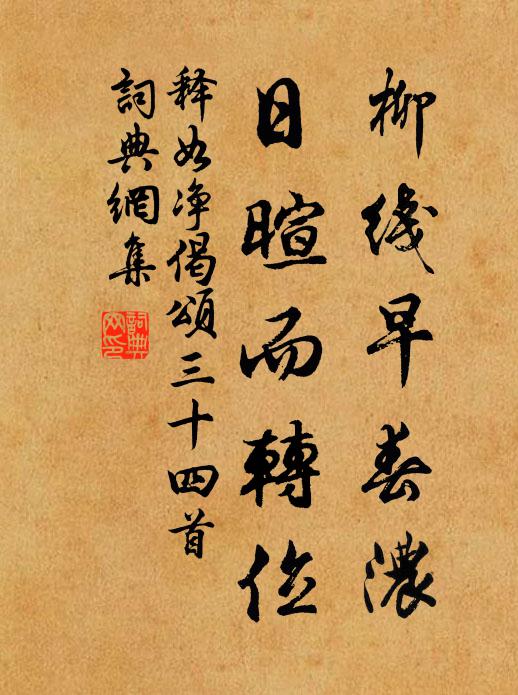 柳线早春濃
日暄而轉位
释如净偈頌三十四首
詞典網集
詞典網印